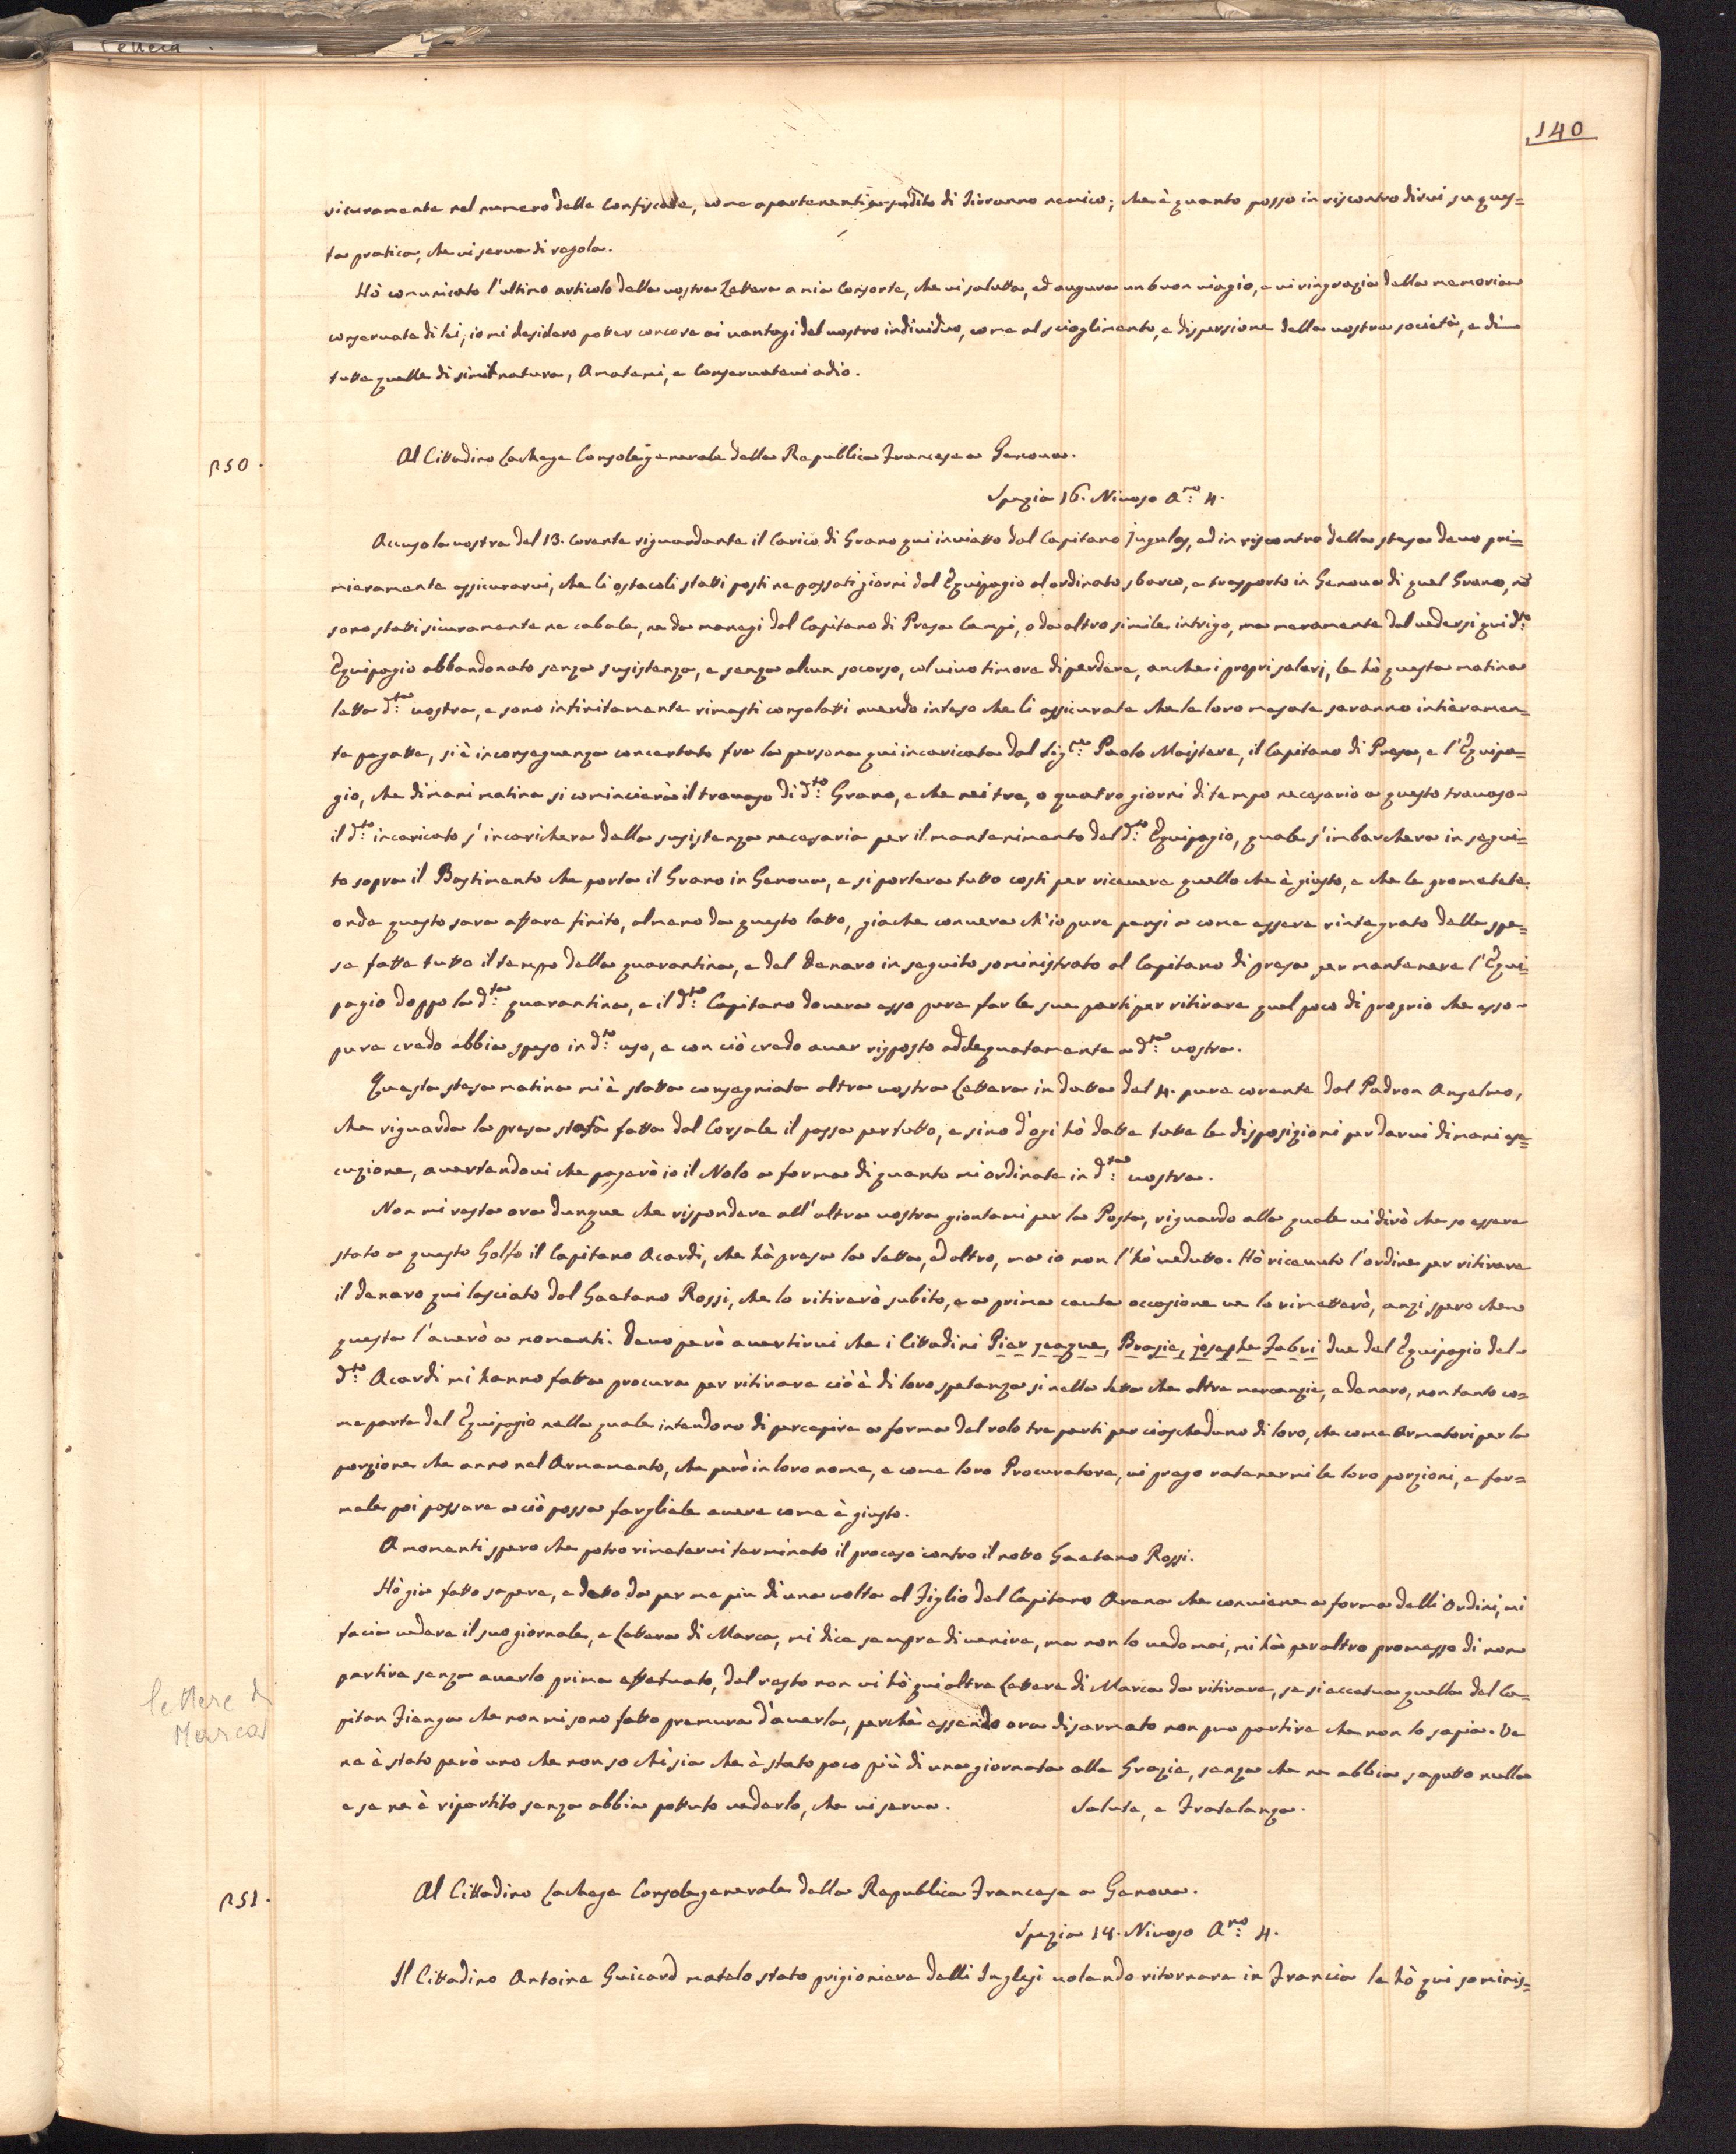 140
sicuramente nel numero delle Confiscate, come apartenenti a sudito di Tiranno nemico; che è quanto posso in riscontro dirvi su ques=
ta pratica, che vi serva di regola.
Hò comunicato l'ultimo articolo della vostra Lettera a mia Consorte, che vi salutta, ed augura un buon viagio, e vi ringrazia della memoria
conservata di lei, io mi desidero potter concore ai vantagi del vostro individuo, come al scioglimento, e dispersione della vostra società, e di
tutte quelle di simil natura, Amatemi, e Conservatevi adio.
250.
Al Cittadino Lachege Console generale della Republica Francese a Genova.
Spezia 16. Nivoso A.no 4.
Accuso la vostra del 13. corente riguardante il Carico di Grano qui inviatto dal Capitano jugulas, ed in riscontro della stesa devo pri=
mieramente assicurarvi, che li ostacoli statti posti ne passati giorni dal Equipagio al ordinato sbarco, e trasporto in Genova di quel Grano, nò
sono statti sicuramente ne cabale, ne da manegi dal Capitano di Presa Campi, o da altro simile intrigo, ma meramente dal vedersi qui d.to
Equipagio abbandonato senza susistenza, e senza alcun socorso, col vivo timore di perdere, anche i propri salarj, le hò questa matina
letta d.ta vostra, e sono infinitamente rimasti consolatti avendo inteso che li assicurate che le loro mesate saranno intieramen=
te pagatte, si è in conseguenza concertato fra la persona qui incaricata dal Sig.re Paolo Maistere, il Capitano di Presa, e l'Equipa=
gio, che dimani matina si comincierà il travaso di d.to Grano, e che nei tre, o quatro giorni di tempo necesario a questo travaso
il d.to incaricato s'incarichera della susistenza necesaria per il mantenimento del d.to Equipagio, quale s'imbarchera in segui=
to sopra il Bastimento che porta il Grano in Genova, e si portera tutto costi per ricevere quello che è giusto, e che le prometete.
onde questo sara affare finito, almeno da questo latto, giache convera ch'io pure pensi a come essere rintegrato delle spe=
se fatte tutto il tempo della quarantina, e del denaro in seguito soministrato al Capitano di presa per mantenere l'Equi=
pagio doppo la d.ta quarantina, e il d.to Capitano dovera esso pure far le sue parti per ritirare quel poco di proprio che esso
pure credo abbia speso in d.to uso, e con ciò credo aver risposto addequatamente a d.ta vostra.
Questa stesa matina mi è statta consegniata altra vostra Lettera in datta del 4. pure corente dal Padron Anselmo,
che riguarda la presa statta fatta dal Corsale il passa per tutto, e sino d'ogi hò datte tutte le disposizioni per darvi dimani ese=
cuzione, avertendovi che pagarò io il Nolo a forma di quanto mi ordinate in d.ta vostra.
Non mi resta ora dunque che rispondere all'altra vostra giontami per la Posta, riguardo alla quale vi dirò che so essere
stato a questo Golfo il Capitano Acardi, che hà presa la Setta, ed altro, ma io non l'hò vedutto. Hò ricevuto l'ordine per ritirare
il denaro qui lasciato dal Gaetano Rossi, che lo ritirerò subito, e a prima cauta occasione ve lo rimetterò, anzi spero che
questa l'averò a momenti. devo però avertirvi che i Cittadini Pier jeaque, Brasie, josephe Fabri due del Equipagio del
d.to Acardi mi hanno fatta procura per ritirare ciò è di loro spetanza si nella Setta che altre mercanzie, e denaro, non tanto co=
me parte del Equipagio nella quale intendono di percepire a forma del rolo tre parti per ciascheduno di loro, che come Armatori per la
porzione che anno nel Armamento, che però in loro nome, e come loro Procuratore, vi prego ratenermi le loro porzioni, e far=
mele poi passare a ciò possa fargliele avere come è giusto.
A momenti spero che potro rimetervi terminato il proceso contro il notto Gaetano Rossi.
Hò gia fatto sapere, e detto da per me piu di una volta al Figlio del Capitano Arena che conviene a forma delli Ordini, mi
facia vedere il suo giornale, e Lettera di Marca, mi dice sempre di venire, ma non lo vedo mai, mi hà per altro promesso di non
partire senza averlo prima effetuato, del resto non vi hò qui altre Lettere di Marca da ritirare, se si eccetua quella del Ca=
pitan Fienga che non mi sono fatto premura d'averla, perchè essendo ora disarmato non puo partire che non lo sapia. Ve
ne è stato però uno che non so chi sia che è stato poco più di una giornata alla Grazie, senza che ne abbia saputto nulla
e se ne è ripartito senza abbia pottuto vederlo, che vi serva. Salute, e Fratelanza.
lettere di
Marca
251.
Al Cittadino Lachege Console generale della Republica Francese a Genova.
Spezia 18. Nivoso A.no 4.
Il Cittadino Antoine Guicard matelo stato prigioniere delli Inglesi volendo ritornare in Francia le hò qui sominis=